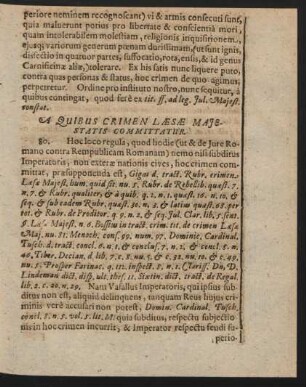 periore neminem recognoscant) vi & armis consecuti sunt,
quia maluerunt potius pro libertate & conscientia mori,
quam intolerabilem molestiam, religionis inquisitionem,
ejusq; variorum generum pœnam durissimam, ut sunt ignis,
dissectio in quatuor partes, suffocatio, rota, ensis, & id genus
Carnificinæ aliæ, tolerare. Ex his satis nunc liquere puto,
contra quas personas & status, hoc crimen de quo agimus,
perpetretur. Ordine pro instituto nostro, nunc sequitur, à
quibus contingat, quod ferè ex tit. ff. ad leg. Jul. Majest.
constat.
A QUIBUS CRIMEN LÆSÆ MAJE-
STATIS COMMITTATUR.
80. Hoc loco regula, quod hodie (ut & de Jure Ro-
mano contra Rempublicam Romanam) nemo nisi subditus
Imperatoris, non exteræ nationis cives, hoc crimen com-
mittat, præsupponenda est, Gigas d. tract. Rubr. crimen
Læsæ Majest. hum. quid sit. nu. 5. Rubr. de Rebellib. quæst. 7.
n. 7. & Rubr. qualiter, & à quib. q. 2. n. 1. quæst. 16. n. 10. &
seq. & sub eadem Rubr. quæst. 30. n. 2. & latiùs quæst. 65. per
tot. & Rubr. de Proditor. q. 9. n. 2. & seq. Jul. Clar, lib. 5. sent.
§. Læs. Majest. n. 6. Bossius in tract. crim. tit. de crimen Læs.
Maj. nu. 31. Menoch. cons. 99. num. 97. Dominic. Cardinal.
Tusch. d. tract. concl. 6. n. 1. & conclus. 7. n. 2. & concl. 8. n.
40, Tiber. Decian. d. lib. 7. c. 8. nu. 5. & c. 32. nu. 10. & c. 49.
nu. 5. Prosper Farinac. q. 112. inspect. 3. n. 1. Clariss. Dn. D.
Lindeman dict. disp. ult. thes. 11. Sixtin. dict. tract. de Regal.
lib. 2. c. 20. n. 29. Nam Vasallus Imperatoris, qui ipsius sub-
ditus non est, aliquid delinquens, tanquam Reus hujus cri-
minis verè accusari non potest, Domin. Cardinal. Tusch.
concl. 5. n. 5. vol. 5. lit. M. quia subditus, respectu subjectio-
nis in hoc crimen incurrit, & Imperator respectu feudi su-
perio-